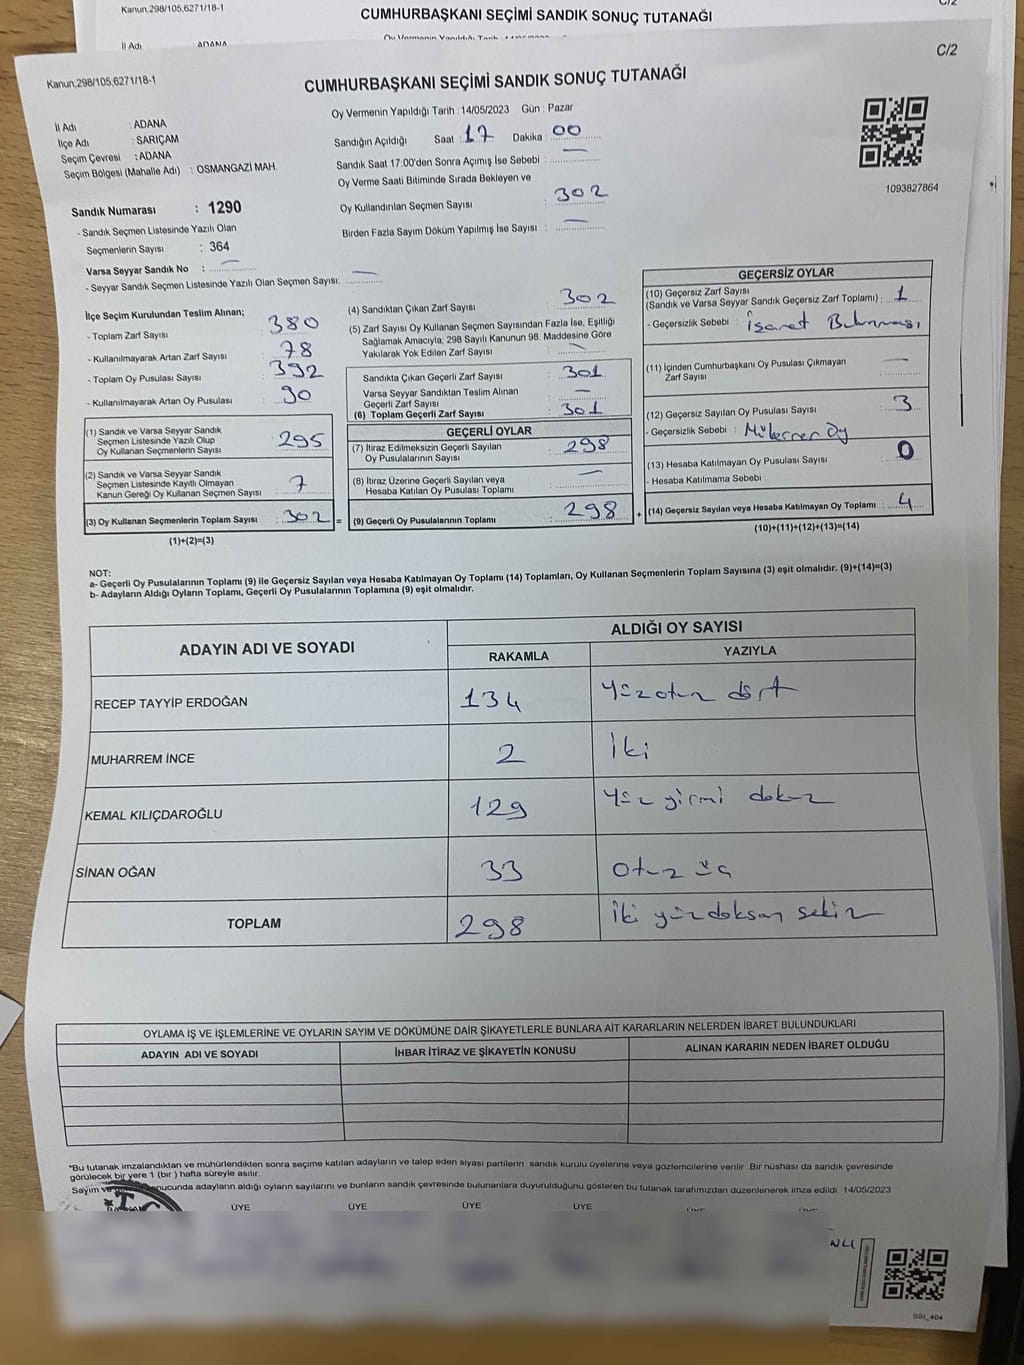 Kanun,298/105,6271/18-1
CUMHURBAŞKANI SEÇİMİ SANDIK SONUÇ TUTANAĞI
C/2
İl Adı
ADANA
Oy Vermenin Yapıldığı Tarih
Kanun,298/105,6271/18-1
CUMHURBAŞKANI SEÇİMİ SANDIK SONUÇ TUTANAĞI
C/2
İl Adı : ADANA
İlçe Adı : SARIÇAM
Seçim Çevresi : ADANA
Seçim Bölgesi (Mahalle Adı) : OSMANGAZİ MAH.
Oy Vermenin Yapıldığı Tarih : 14/05/2023 Gün : Pazar
Sandığın Açıldığı Saat : 17 Dakika : 00
Sandık Saat 17:00'den Sonra Açımış İse Sebebi : —
Oy Verme Saati Bitiminde Sırada Bekleyen ve
Oy Kullandırılan Seçmen Sayısı : 302
Birden Fazla Sayım Döküm Yapılmış İse Sayısı : —
1093827864
Sandık Numarası : 1290
- Sandık Seçmen Listesinde Yazılı Olan
Seçmenlerin Sayısı : 364
Varsa Seyyar Sandık No : —
- Seyyar Sandık Seçmen Listesinde Yazılı Olan Seçmen Sayısı: —
İlçe Seçim Kurulundan Teslim Alınan;
- Toplam Zarf Sayısı : 380
- Kullanılmayarak Artan Zarf Sayısı : 78
- Toplam Oy Pusulası Sayısı : 392
- Kullanılmayarak Artan Oy Pusulası : 90
(1) Sandık ve Varsa Seyyar Sandık
Seçmen Listesinde Yazılı Olup
Oy Kullanan Seçmenlerin Sayısı : 295
(2) Sandık ve Varsa Seyyar Sandık
Seçmen Listesinde Kayıtlı Olmayan
Kanun Gereği Oy Kullanan Seçmen Sayısı : 7
(3) Oy Kullanan Seçmenlerin Toplam Sayısı : 302 =
(1)+(2)=(3)
(4) Sandıktan Çıkan Zarf Sayısı : 302
(5) Zarf Sayısı Oy Kullanan Seçmen Sayısından Fazla İse, Eşitliği
Sağlamak Amacıyla; 298 Sayılı Kanunun 98. Maddesine Göre
Yakılarak Yok Edilen Zarf Sayısı : —
Sandıkta Çıkan Geçerli Zarf Sayısı : 301
Varsa Seyyar Sandıktan Teslim Alınan
Geçerli Zarf Sayısı : —
(6) Toplam Geçerli Zarf Sayısı : 301
GEÇERLİ OYLAR
(7) İtiraz Edilmeksizin Geçerli Sayılan
Oy Pusulalarının Sayısı : 298
(8) İtiraz Üzerine Geçerli Sayılan veya
Hesaba Katılan Oy Pusulası Toplamı : —
(9) Geçerli Oy Pusulalarının Toplamı : 298 +
GEÇERSİZ OYLAR
(10) Geçersiz Zarf Sayısı
(Sandık ve Varsa Seyyar Sandık Geçersiz Zarf Toplamı) : 1
- Geçersizlik Sebebi : İşaret Bulunması
(11) İçinden Cumhurbaşkanı Oy Pusulası Çıkmayan
Zarf Sayısı : —
(12) Geçersiz Sayılan Oy Pusulası Sayısı : 3
- Geçersizlik Sebebi : Mükerrer Oy
(13) Hesaba Katılmayan Oy Pusulası Sayısı : 0
- Hesaba Katılmama Sebebi :
(14) Geçersiz Sayılan veya Hesaba Katılmayan Oy Toplamı : 4
(10)+(11)+(12)+(13)=(14)
NOT:
a- Geçerli Oy Pusulalarının Toplamı (9) ile Geçersiz Sayılan veya Hesaba Katılmayan Oy Toplamı (14) Toplamları, Oy Kullanan Seçmenlerin Toplam Sayısına (3) eşit olmalıdır. (9)+(14)=(3)
b- Adayların Aldığı Oyların Toplamı, Geçerli Oy Pusulalarının Toplamına (9) eşit olmalıdır.
ADAYIN ADI VE SOYADI
ALDIĞI OY SAYISI
RAKAMLA
YAZIYLA
RECEP TAYYİP ERDOĞAN 134 Yüz otuz dört
MUHARREM İNCE 2 İki
KEMAL KILIÇDAROĞLU 129 Yüz yirmi dokuz
SİNAN OĞAN 33 Otuz üç
TOPLAM 298 İki yüz doksan sekiz
OYLAMA İŞ VE İŞLEMLERİNE VE OYLARIN SAYIM VE DÖKÜMÜNE DAİR ŞİKAYETLERLE BUNLARA AİT KARARLARIN NELERDEN İBARET BULUNDUKLARI
ADAYIN ADI VE SOYADI
İHBAR İTİRAZ VE ŞİKAYETİN KONUSU
ALINAN KARARIN NEDEN İBARET OLDUĞU
*Bu tutanak imzalandıktan ve mühürlendikten sonra seçime katılan adayların ve talep eden siyasi partilerin sandık kurulu üyelerine veya gözlemcilerine verilir .Bir nüshası da sandık çevresinde
görülecek bir yere 1 (bir ) hafta süreyle asılır.
Sayım ve sonucunda adayların aldığı oyların sayılarını ve bunların sandık çevresinde bulunanlara duyurulduğunu gösteren bu tutanak tarafımızdan düzenlenerek imza edildi. 14/05/2023
ÜYE ÜYE ÜYE ÜYE
GSI_404